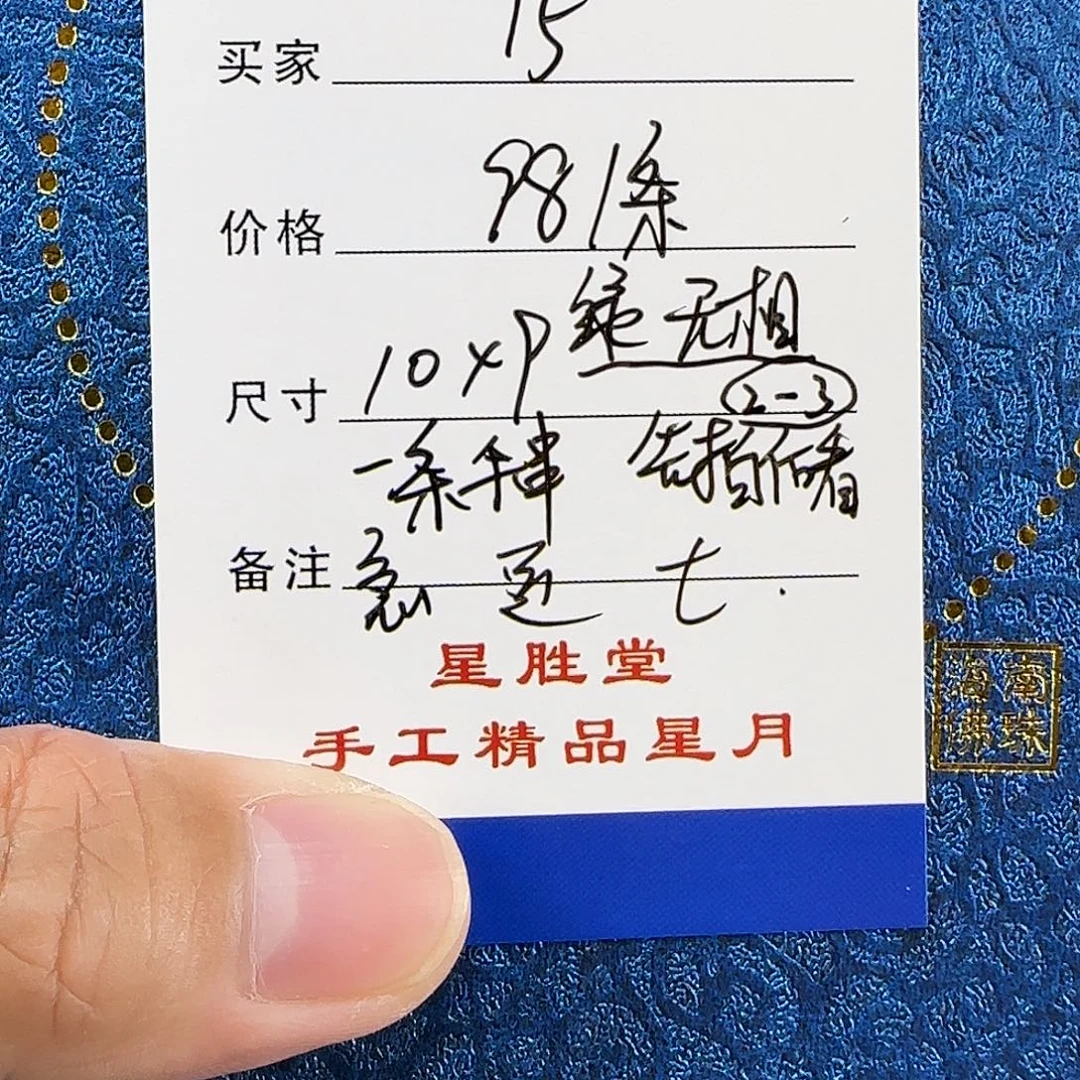 买家 15
价格 98/条
无相
尺寸 10×9
2-3
一条手串
备注 七.
星胜堂
手工精品星月
海南
佛珠